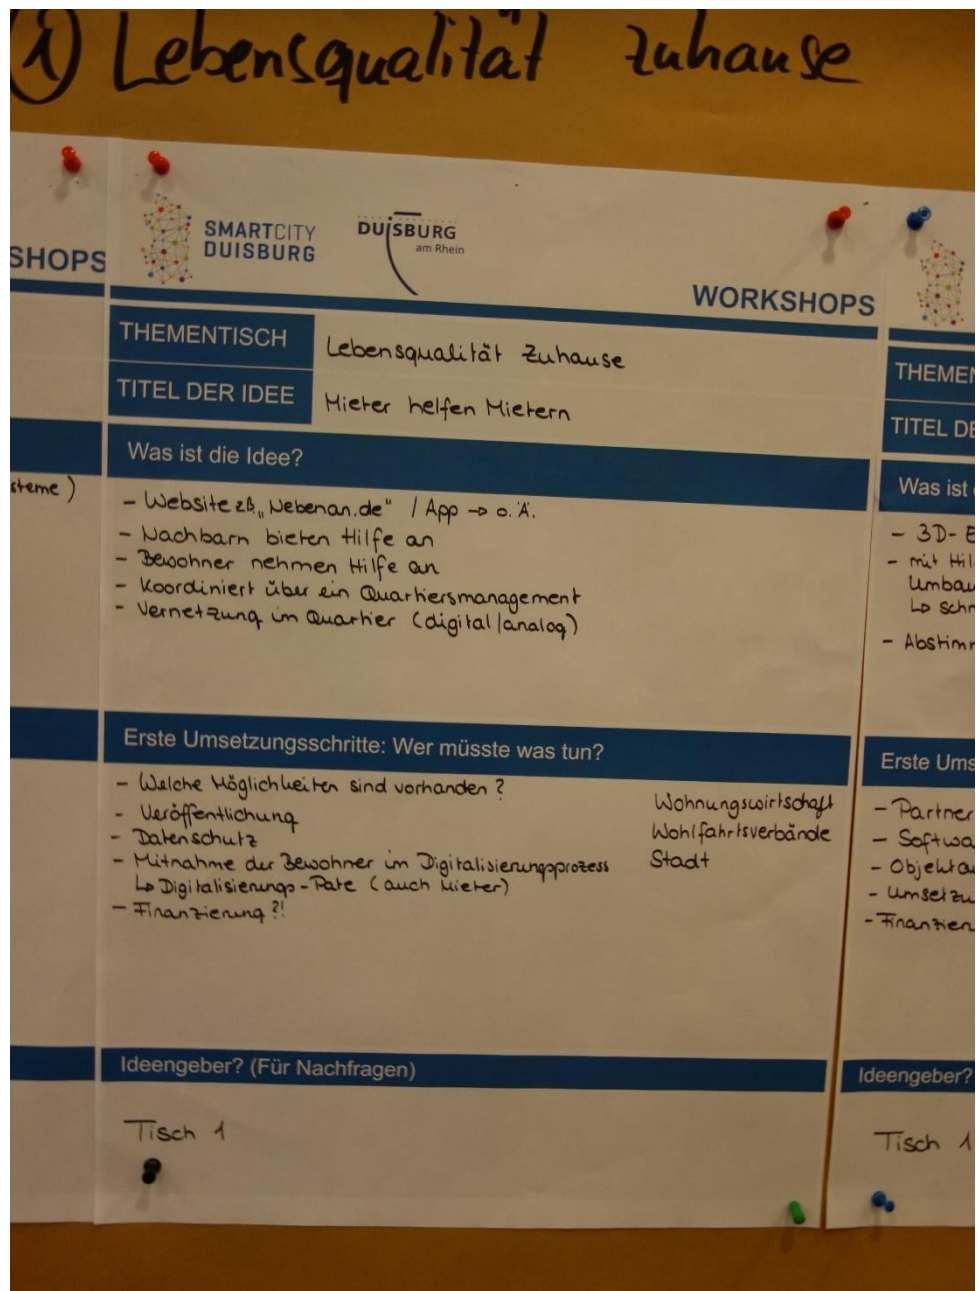 1) Lebensqualität zuhause
SHOPS
steme)
SMARTCITY
DUISBURG
DUISBURG
am Rhein
WORKSHOPS
THEMENTISCH
Lebensqualität Zuhause
TITEL DER IDEE
Mieter helfen Mietern
Was ist die Idee?
- Website zB „Nebenan.de" / App → o.Ä.
- Nachbarn bieten Hilfe an
- Bewohner nehmen Hilfe an
- Koordiniert über ein Quartiersmanagement
- Vernetzung im Quartier (digital/analog)
Erste Umsetzungsschritte: Wer müsste was tun?
- Welche Möglichkeiten sind vorhanden?
- Veröffentlichung
- Datenschutz
- Mitnahme der Bewohner im Digitalisierungsprozess
↳ Digitalisierungs-Pate (auch Mieter)
- Finanzierung?!
Wohnungswirtschaft
Wohlfahrtsverbände
Stadt
Ideengeber? (Für Nachfragen)
Tisch 1
THEMEN
TITEL DE
Was ist
- 3D-E
- mit Hil
Umbau
↳ schn
- Abstimm
Erste Ums
- Partner
- Softwa
- Objekta
- Umsetzu
- Finanzier
Ideengeber?
Tisch 1